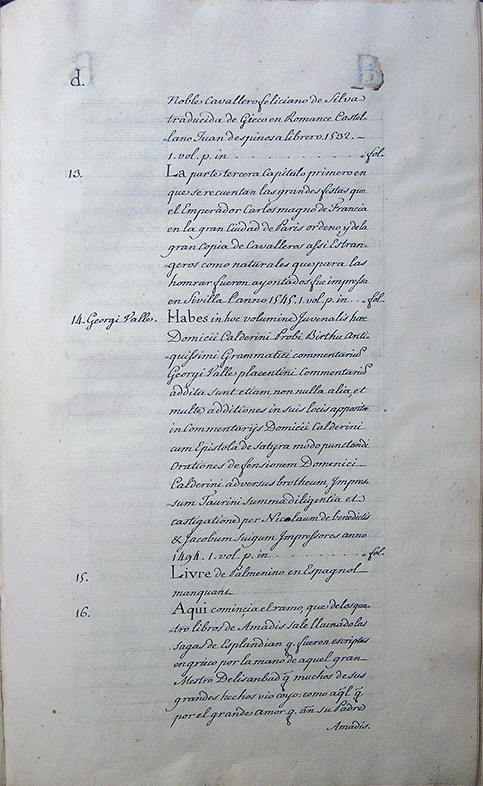 d. B
Noble Cavallero feliciano de Silva
traducida de Gieco en Romance Castel-
-lano Juan despinosa librero 1532.
1. vol. p. in . . . . . . . . . . fol.
13. La parte tercera Capitulo primero en
que se recuentan las grandes fistas que
el Emperador Carlos magno de Francia
en la gran Ciudad de Paris ordeno, y de la
gran Copia de Cavalleros assi Estran-
geros como naturales que para las
homrar fueron ayontados fue impressa
en Sevilla l'anno 1545. 1. vol. p. in . . . fol.
14. Georgi Valle. Habes in hoc volumine Juvenalis hæc
Domicii Calderini Probi Birthu Anti-
quissimi Grammatici commentariu
Georgi Valle placentini Commentariu
addita sunt etiam non nulla alia, et
multe additiones in suis locis appositæ
in Commentarijs Domicii Calderini
cum Epistola de Satyra modo punctandi
Orationes defensionem Domenici
Calderini adversus brotheum Impres-
sum Taurini summa diligentia et
castigatione per Nicolaum de benedictis
& Jacobum Suigum Impressores anno
1494. 1. vol. p. in . . . . . . . . . . fol.
15. Livre de Palmenino en Espagnol
manquant
16. Aqui comincia el ramo, que de los qua-
-tro libros de Amadis sale llamado las
sagas de Esplandian q. fueron escriptas
en grico por la mano de aquel gran
Mestro Delisanbad q̃ muchos de sus
grandes hechos vio como aq̃l q̃
por el grande amor q. a su Padre
Amadis.